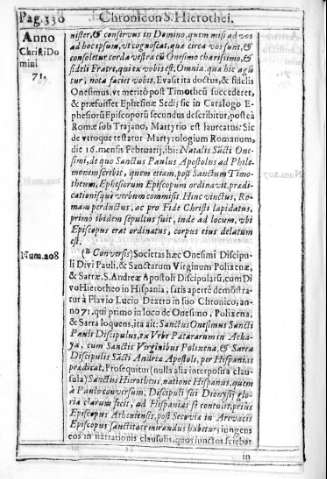 Pag.330 Chronicon S. Hierothei.
Anno
Christi Do
mini
71.
nister, & conservus in Domino, quem misi ad vos
ad hoc ipsum, ut cognoscat, quæ circa vos sunt, &
consoletur corda vestra cũ Onesimo charissimo, &
fideli Fratre, qui ex vobis est. Omnia, quæ hic agũ
tur, nota facient vobis. Evasit ita doctus, & fidelis
Onesimus, ut meritò post Timotheũ succederet,
& præfuisset Ephesinæ Sedi; sic in Catalogo E-
phesiorũ Episcoporũ secundus describitur, postea
Romæ sub Trajano, Martyrio est laureatus: Sic
de utroque testatur Martyrologium Romanum,
die 16. mensis Februarij, ibi: Natalis Sãcti One-
simi, de quo Sanctus Paulus Apostolus ad Phile-
monem scribit, quem etiam, post Sanctum Timo-
theum, Ephesiorum Episcopum ordinavit, prædi-
cationisque verbum commisit. Hinc vinctus, Ro-
mam perductus, ac pro Fide Christi lapidatus,
primò ibidem sepultus fuit, inde ad locum, ubi
Episcopus erat ordinatus, corpus eius delatum
est.
Num.208
Conversis) Societas hæc Onesimi Discipu-
li Divi Pauli, & Sanctarum Virginum Polixenæ,
& Sarræ, S. Andreæ Apostoli Discipularũ, cum Di
vo Hierotheo in Hispania, satis apertè demonstra-
tur à Flavio Lucio Dextro in suo Chronico, an-
no 71. qui primo in loco de Onesimo, Polixena,
& Sarra loquens, ita ait: Sanctus Onesimus Sancti
Pauli Discipulus, ex Urbe Patrarum in Acha-
ja, cum Sanctis Virginibus Polixena, & Sarra
Discipulis Sãcti Andreæ Apostoli, per Hispanias
prædicat, Prosequitur (nulla alia interposita clau-
sula) Sanctus Hierotheus, natione Hispanus, quem
à Paulo conversum, Discipuli sui Dionysij glo-
ria clarum fecit, ad Hispanias se contulit, prius
Episcopus Atheniensis, post Segoviæ in Arevacis
Episcopus sanctitate mirandus habetur; iungens
eos in narrationis clausulis, quos junctos sciebat
in